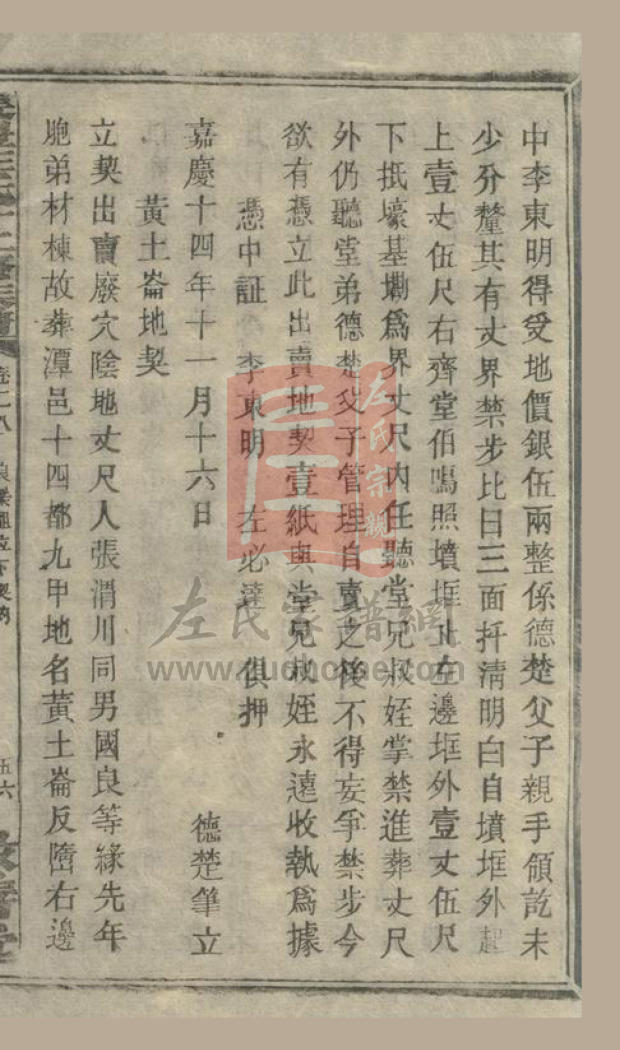 中李東明得受地價銀伍兩整係德楚父子親手領訖未
少分釐其有丈界禁步比日三面扦清明白自墳框外起
上壹丈伍尺右齊堂伯鳴照墳框止左邊框外壹丈伍尺
下抵壕基塝爲界丈尺內任聽堂兄叔姪掌禁進葬丈尺
外仍聽堂弟德楚父子管理自賣之後不得妄爭禁步今
欲有憑立此出賣地契壹紙與堂兄叔姪永遠收執爲據
憑中証 李東明 左必達 俱押
嘉慶十四年十一月十六日 德楚筆立
黃土崙地契
立契出賣廢穴陰地丈尺人張渭川同男國良等緣先年
胞弟材棟故葬潭邑十四都九甲地名黃土崙反嶞右邊
五六
左氏宗親
左氏家譜網